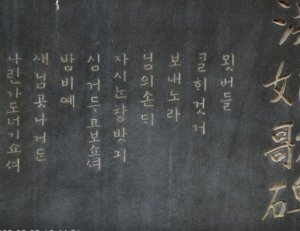 洪娘歌碑
묏버들
골희것거
보내노라
님의손ᄃᆡ
자시ᄂᆞᆫ창밧긔
심거두고보쇼셔
밤비예
새닙곳나거든
나린가도너기쇼셔